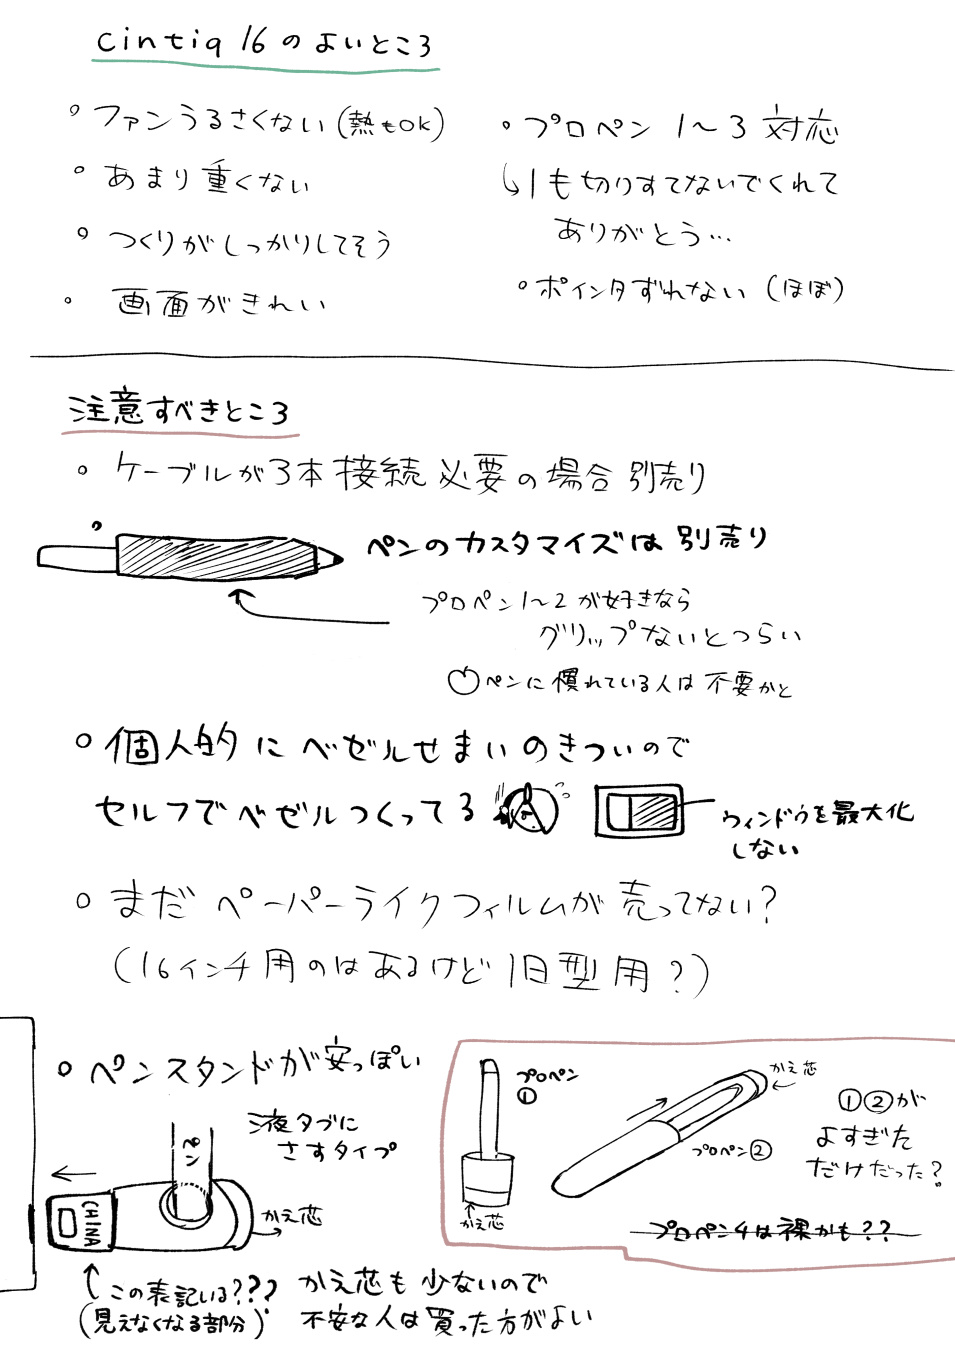 cintiq 16のよいところ
。ファンうるさくない(熱もOK)
。あまり重くない
。つくりがしっかりしてそう
。画面がきれい
。プロペン 1〜3 対応
↳1も切りすてないでくれて
ありがとう…
。ポインタずれない(ほぼ)
注意すべきところ
。ケーブルが3本接続必要の場合別売り
。ペンのカスタマイズは別売り
プロペン1〜2が好きなら
グリップないとつらい
ペンに慣れている人は不要かと
。個人的にベゼルせまいのきついので
セルフでベゼルつくってる
ウィンドウを最大化
しない
。まだペーパーライクフィルムが売ってない?
(16インチ用のはあるけど旧型用?)
。ペンスタンドが安っぽい
液タブに
さすタイプ
ペン
CHINA
かえ芯
この表記いる???
(見えなくなる部分)
かえ芯も少ないので
不安な人は買った方がよい
プロペン
①
かえ芯
かえ芯
プロペン②
①②が
よすぎた
だけだった?
プロペン4は裸かも??